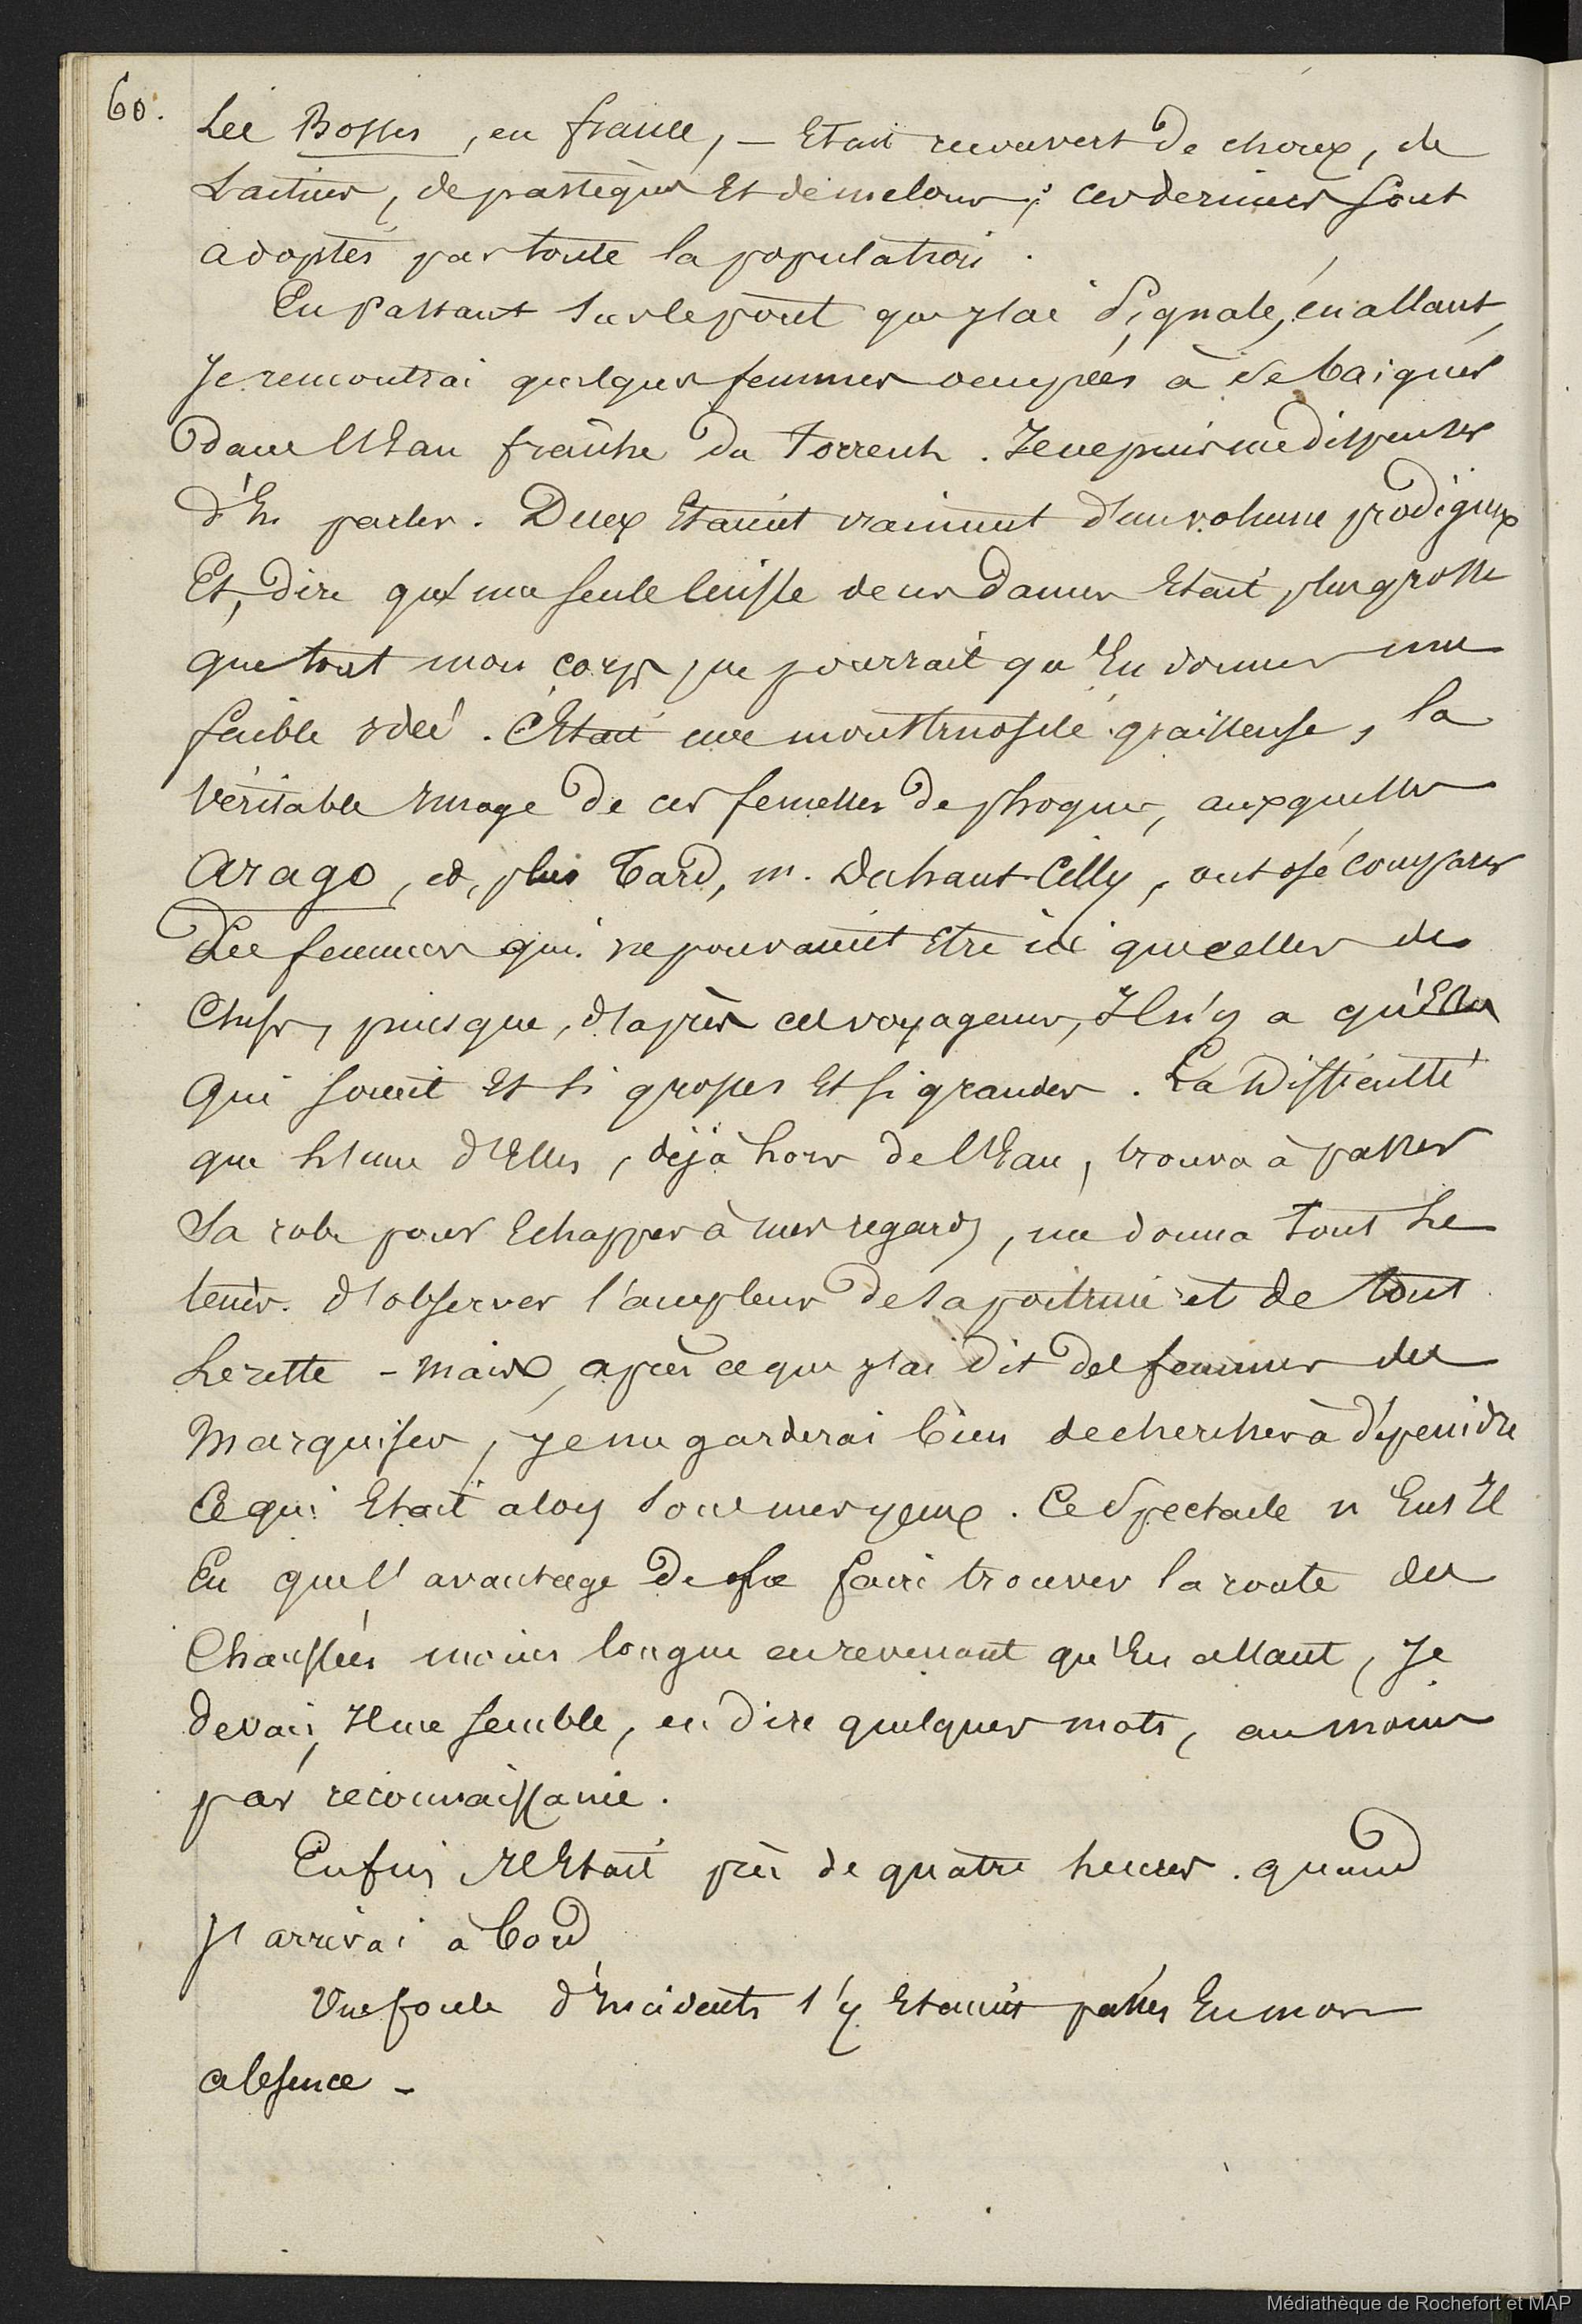 60.
Les Bosses, en france, — Etait recouvert de choux, de
Laitues, de pastèques Et de melons; ces derniers sont
adoptés par toute la population.
En Passant sur le pont que j'ai signalé, en allant,
Je rencontrai quelques femmes occupées à se baigner
dans l'Eau fraîche du Torrent. Je ne puis me dispenser
d'En parler. Deux Etaient vraiment d'un volume prodigieux
Et, dire qu'une seule cuisse de ces dames Etait plus grosse
que tout mon corps, ne pourrait qu'En donner une
faible idée. C'Etait une monstruosité graisseuse, la
véritable Image de ces femelles de phoques, auxquelles
Arago, et, plus Tard, m. Duhaut-Cilly, ont osé comparer
des femmes qui ne pouvaient Etre ici que celles des
Chefs, puisque, d'après ces voyageurs, Il n'y a qu'Elles
Qui soient Et si grosses Et si grandes. La Difficulté
que l'une d'Elles, déjà hors de l'Eau, trouva à passer
Sa robe pour Echapper à mes regards, me donna Tout Le
tems d'observer l'ampleur de sa poitrine et de tout
Le reste - mais, après ce que j'ai Dit des femmes des
Marquises, je me garderai bien de chercher à dépeindre
Ce qui Etait alors sous mes yeux. Ce Spectacle n'Eut Il
Eu que l'avantage de me faire trouver la route des
Chaussées moins longue en revenant qu'En allant, Je
devais, Il me semble, en dire quelques mots, au moins
par reconnaissance.
Enfin Il Etait près de quatre heures quand
J'arrivai à bord
Une foule d'Incidents s'y Etaient passés En mon
absence -
Médiathèque de Rochefort et MAP